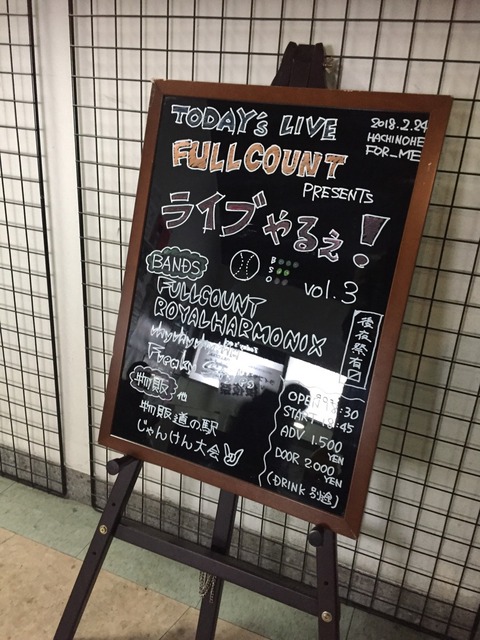 TODAY'S LIVE
2018.2.24
HACHINOHE
FOR_ME
FULLCOUNT
PRESENTS
ライブやるぇ!
BANDS
B
S
O
vol.3
FULLCOUNT
ROYALHARMONIX
Freak
後夜祭有
物販 他
物販道の駅
じゃんけん大会
OPEN :30
START :45
ADV 1.500
YEN
DOOR 2.000
YEN
(DRINK 別途)